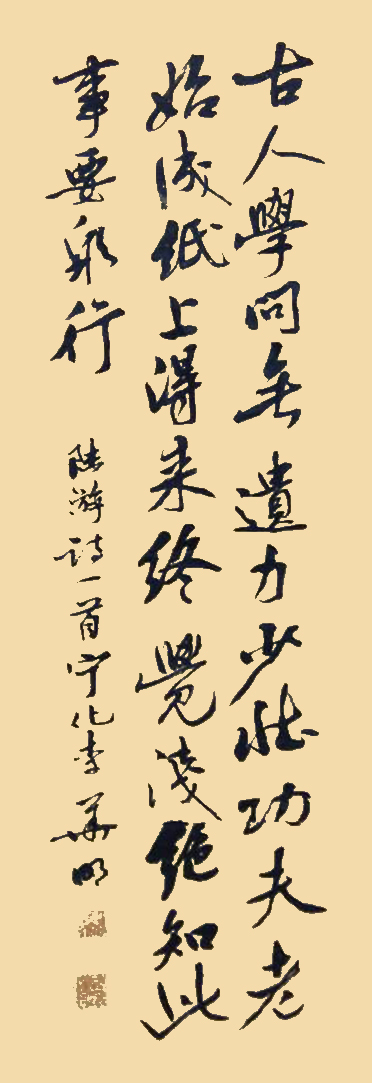 古人學問無遺力少壯功夫老
始成紙上得来終覺淺絕知此
事要躬行
陆游詩一首宁化李華明